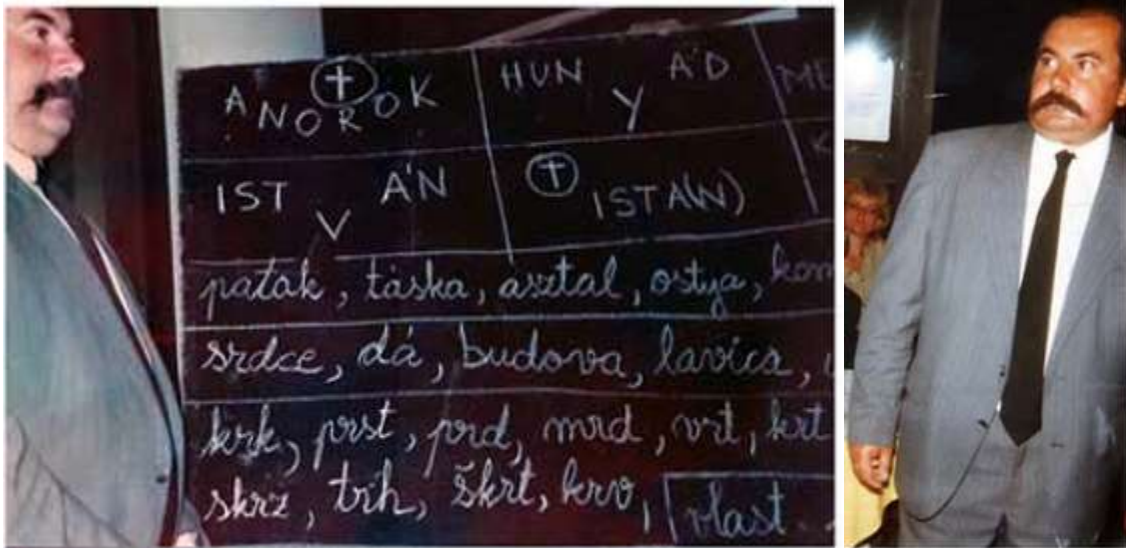 ANOROK HUN Y ÁD ME
IST V ÁN ISTA(N) K
patak, táska, asztal, ostya, kom
srdce, dá, budova, lavica,
krk, prst, prd, mrd, vrt, krt
skrz, trh, škrt, krv, vlast..